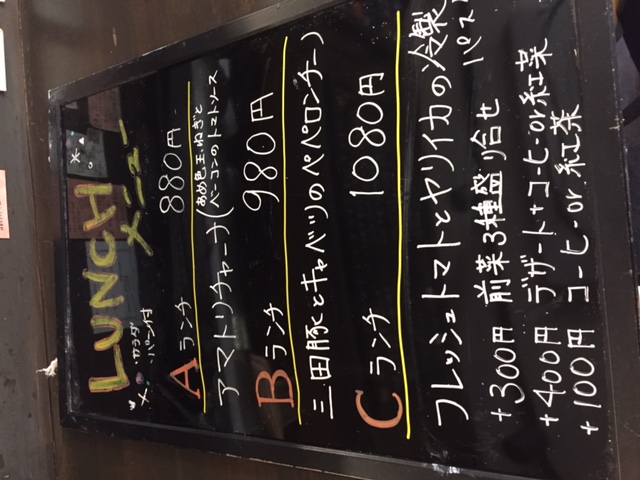 LUNCH
メニュー
サラダ
パン付
Aランチ 880円
アマトリチャーナ(あめ色玉ねぎと
ベーコンのトマトソース
Bランチ 980円
三田豚とキャベツのペペロンチーノ
Cランチ 1080円
フレッシュトマトとヤリイカの冷製
パス
+300円 前菜3種盛り合せ
+400円 デザート+コーヒーor紅茶
+100円 コーヒーor紅茶